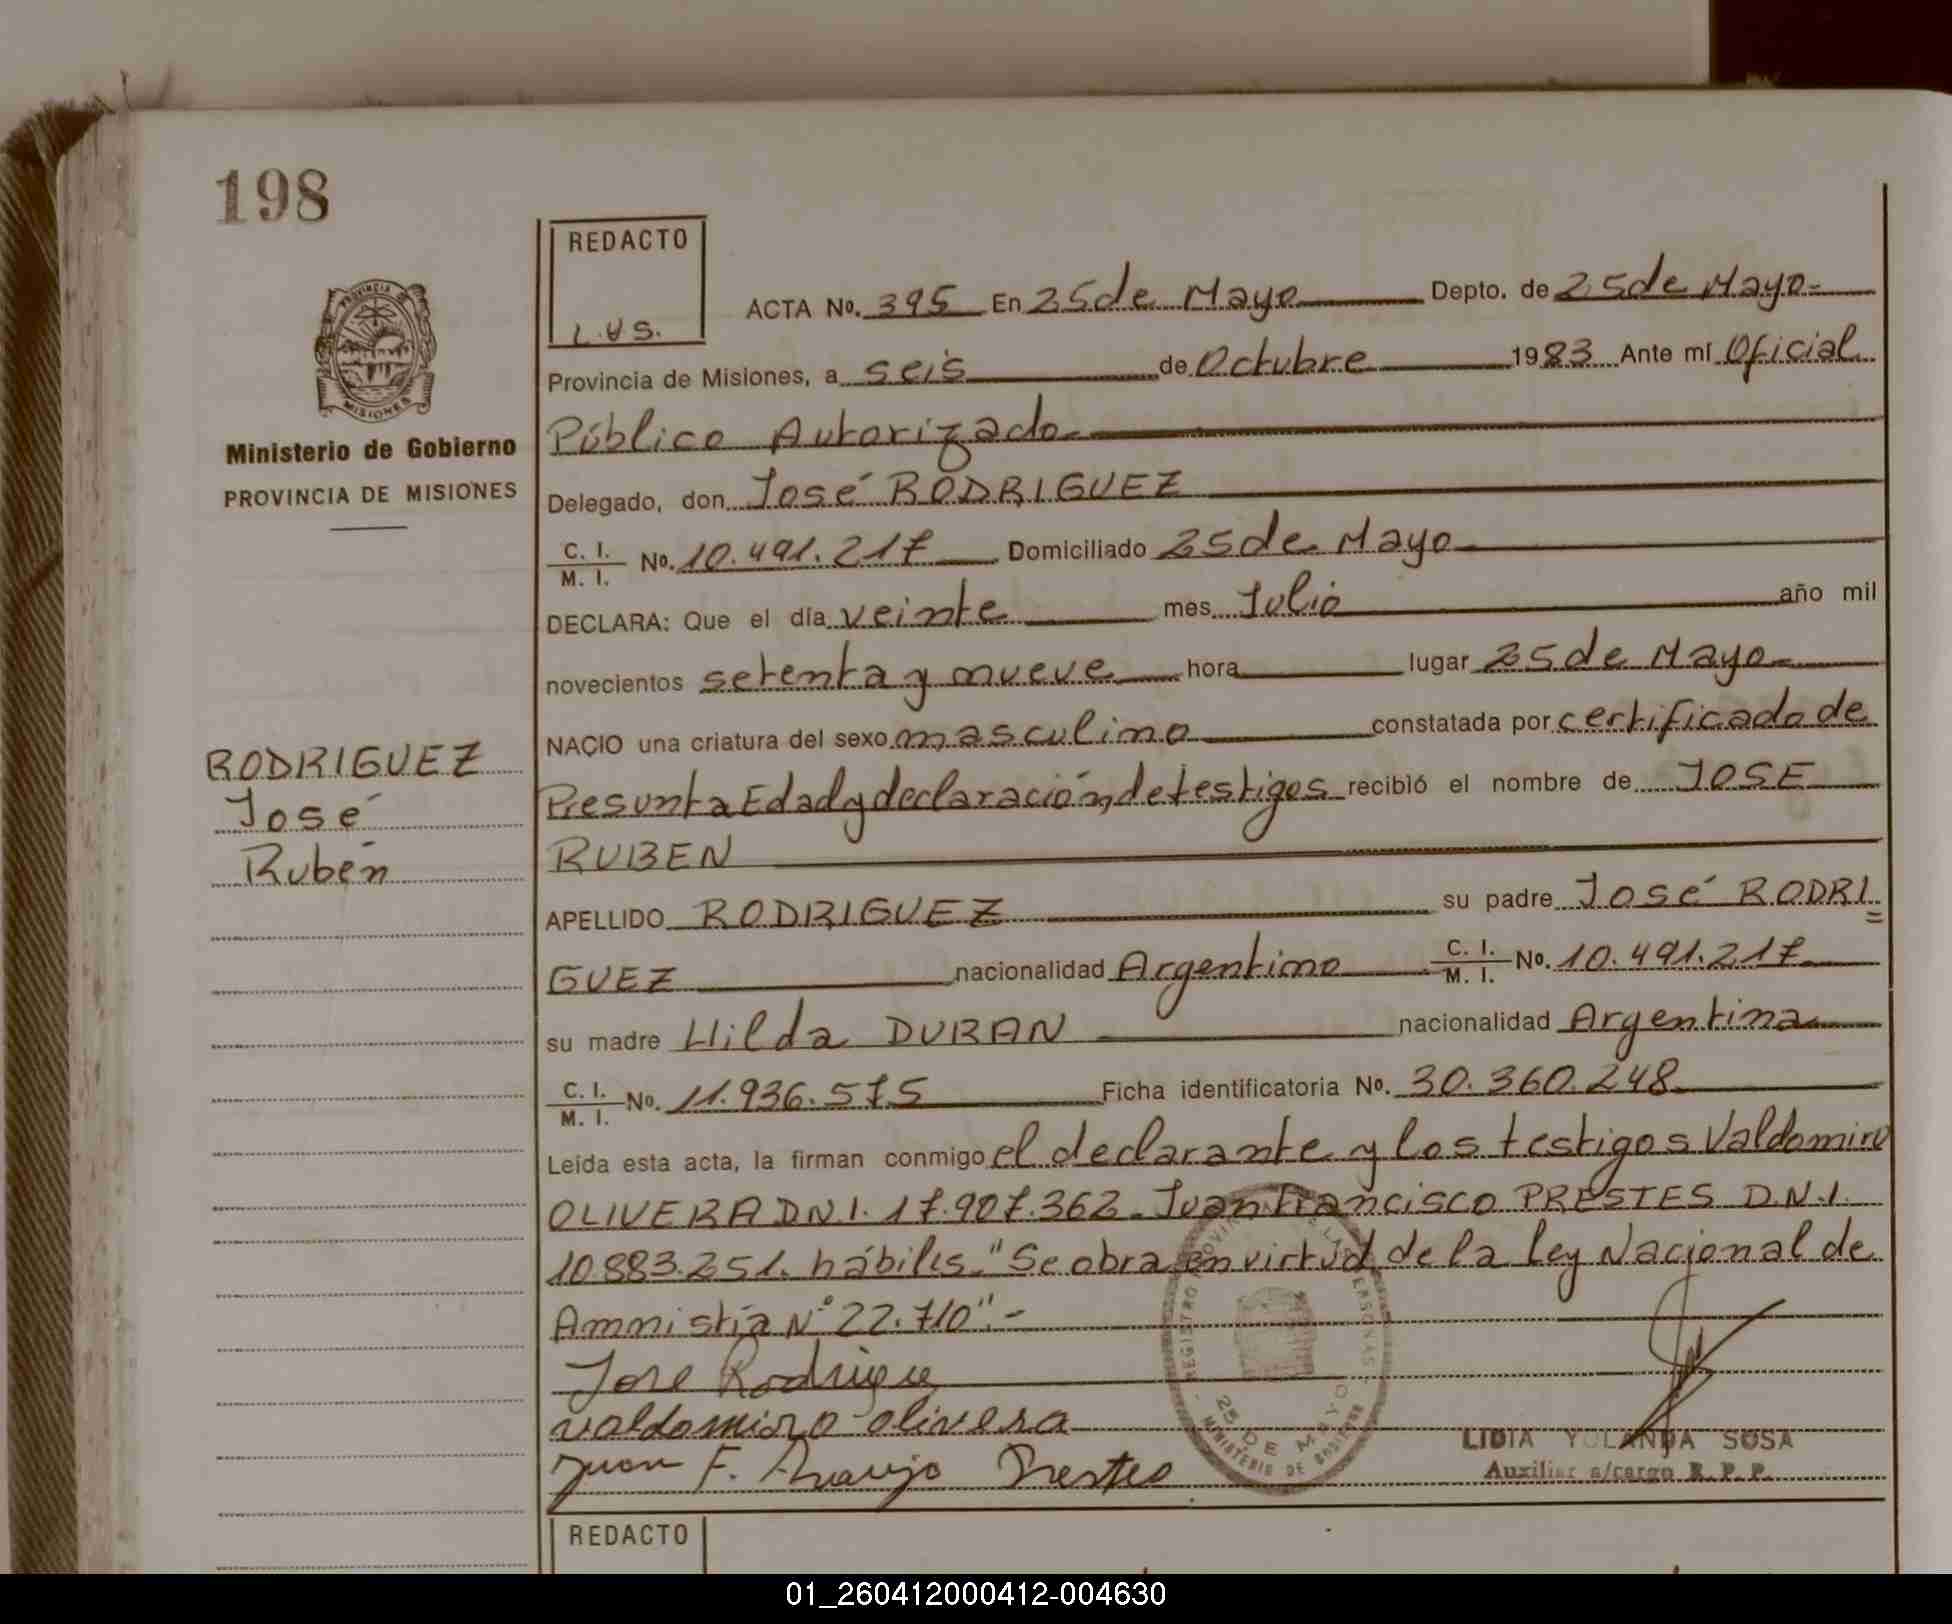 198
REDACTO
L.Y.S.
PROVINCIA DE
MISIONES
Ministerio de Gobierno
PROVINCIA DE MISIONES
RODRIGUEZ
José
Rubén
ACTA No. 395 En 25 de Mayo Depto. de 25 de Mayo.
Provincia de Misiones, a seis de Octubre 1983 Ante mí Oficial
Público Autorizado.
Delegado, don José RODRIGUEZ
C. I. / M. I. No. 10.491.217 Domiciliado 25 de Mayo
DECLARA: Que el día veinte mes Julio año mil
novecientos setenta y nueve hora lugar 25 de Mayo
NACIO una criatura del sexo masculino constatada por certificado de
Presunta Edad y declaración de testigos recibió el nombre de JOSE
RUBEN
APELLIDO RODRIGUEZ su padre José RODRI=
GUEZ nacionalidad Argentino C. I. / M. I. No. 10.491.217
su madre Hilda DURAN nacionalidad Argentina
C. I. / M. I. No. 11.936.575 Ficha identificatoria No. 30.360.248
Leída esta acta, la firman conmigo el declarante y los testigos Valdomiro
OLIVERA D.N.I. 17.907.362. Juan Francisco PRESTES D.N.I.
10.883.251. hábiles. "Se obra en virtud de la Ley Nacional de
Amnistía N° 22.710".-
Jose Rodrigue
valdomiro olivera
Juan F. Araujo Prestes
25 DE MAYO
LIDIA YOLANDA SOSA
Auxiliar a/cargo R.P.P.
REDACTO
01_260412000412-004630